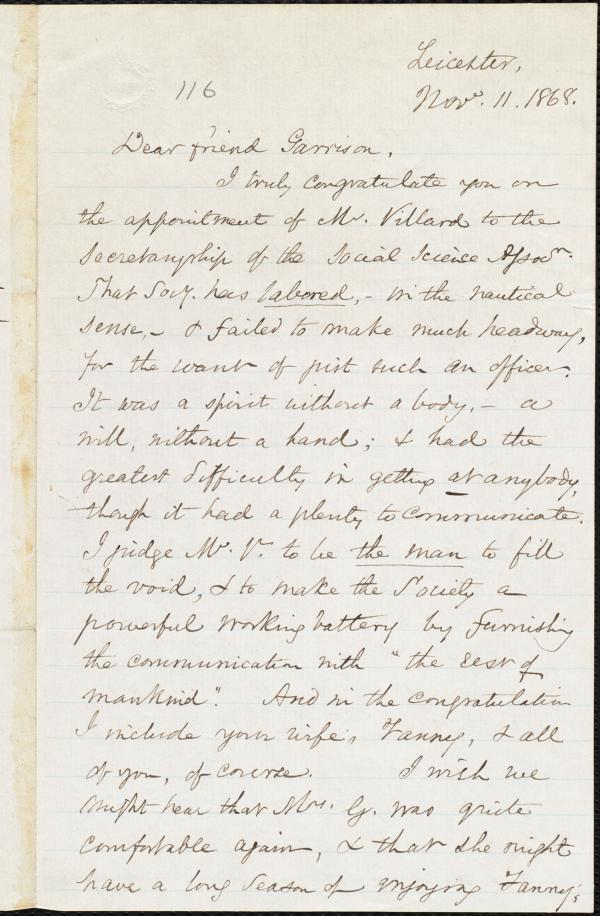 116
Leicester,
Novr. 11. 1868.
Dear friend Garrison,
I truly congratulate you on
the appointment of Mr. Villard to the
Secretaryship of the Social Science Assocn.
That Socy. has labored, - in the nautical
sense, - & failed to make much headway,
for the want of just such an officer.
It was a spirit without a body, - a
will, without a hand; & had the
greatest difficulty in getting at anybody,
though it had a plenty to communicate.
I judge Mr. V. to be the man to fill
the void, & to make the Society a
powerful working battery by furnishing
the communication with "the rest of
mankind". And in the congratulation
I include your wife, Fanny, & all
of you, of course. I wish we
might hear that Mrs. G. was quite
comfortable again, & that she might
have a long season of enjoying Fanny's